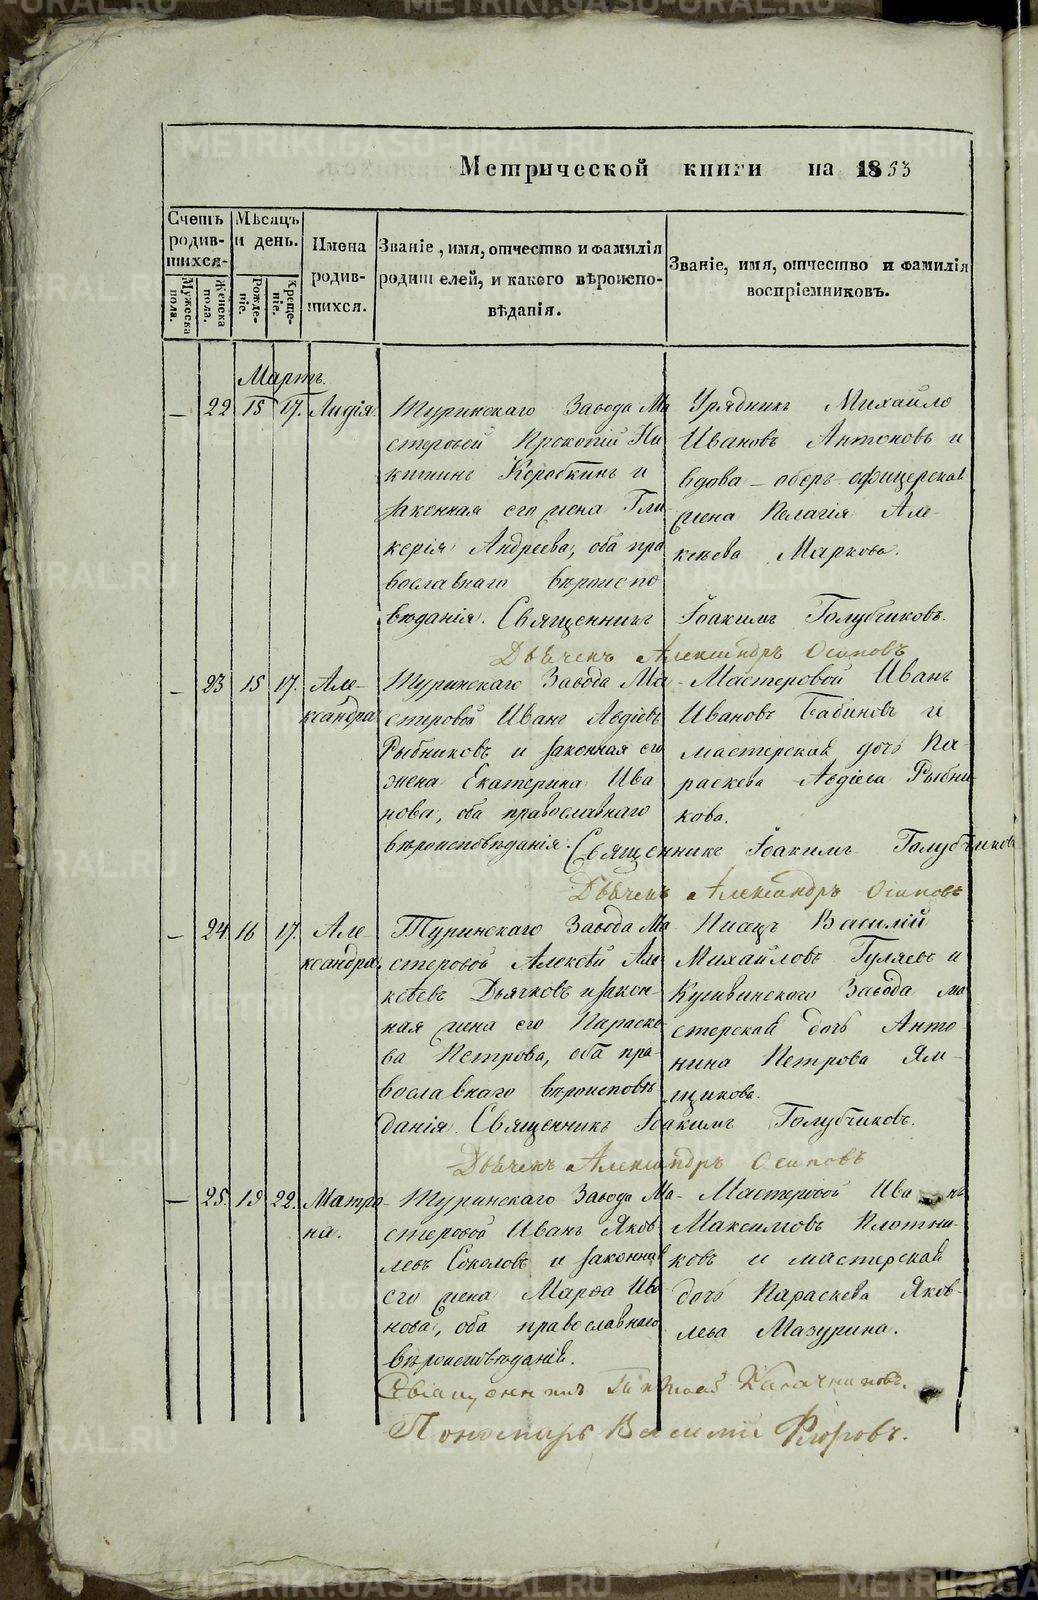 Метрической книги на 1853
Счетъ родив-шихся. Мѣсяцъ и день. Имена родив-шихся. Званіе, имя, отчество и фамилія родителей, и какого вѣроиспо-вѣданія. Званіе, имя, отчество и фамилія воспріемниковъ.
Мужеска пола. Женска пола. Рожде-ніе. Креще-ніе.
Мартъ.
— 22 15 17. Лидія.
Туринскаго Завода Ма
стеровой Прокопій Ни
китинъ Коробкинъ и
законная его жена Гли
керія Андреева, оба пра
вославнаго вѣроиспо
вѣданія.
Урядникъ Михайло
Ивановъ Антоновъ и
вдова оберъ-офицерская
жена Пелагія Але-
ксѣева Маркова.
Священникъ Іоакимъ Голубчиковъ.
Дьячекъ Александръ Осиповъ
— 23 15 17. Але-
ксандра
Туринскаго Завода Ма-
стеровой Иванъ Авдіевъ
Рыбниковъ и законная его
жена Екатерина Ива
нова, оба православнаго
вѣроисповѣданія.
Мастеровой Иванъ
Ивановъ Бабиновъ и
мастерская дочь Па-
раскева Авдіева Рыбни-
кова.
Священникъ Іоакимъ Голубчиковъ
Дьячекъ Александръ Осиповъ
— 24 16 17. Але-
ксандра.
Туринскаго Завода Ма-
стеровой Алексѣй Але
ксѣевъ Дьячковъ и закон-
ная жена его Параске-
ва Петрова, оба пра-
вославнаго вѣроисповѣ
данія.
Писецъ Василій
Михайловъ Гуляевъ и
Кушвинскаго Завода ма
стерская дочь Анто
нина Петрова Ям-
щикова.
Священникъ Іоакимъ Голубчиковъ.
Дьячекъ Александръ Осиповъ
— 25. 19 22. Матро-
на.
Туринскаго Завода Ма-
стеровой Иванъ Яков
левъ Соколовъ и законная
его жена Марѳа Ива
нова, оба православнаго
вѣроисповѣданія.
Мастеровой Иванъ
Максимовъ Плотни-
ковъ и мастерская
дочь Параскева Яков-
лева Мазурина.
Священникъ Калачниковъ.
Пономарь Василій Флоровъ.
METRIKI.GASO-URAL.RU